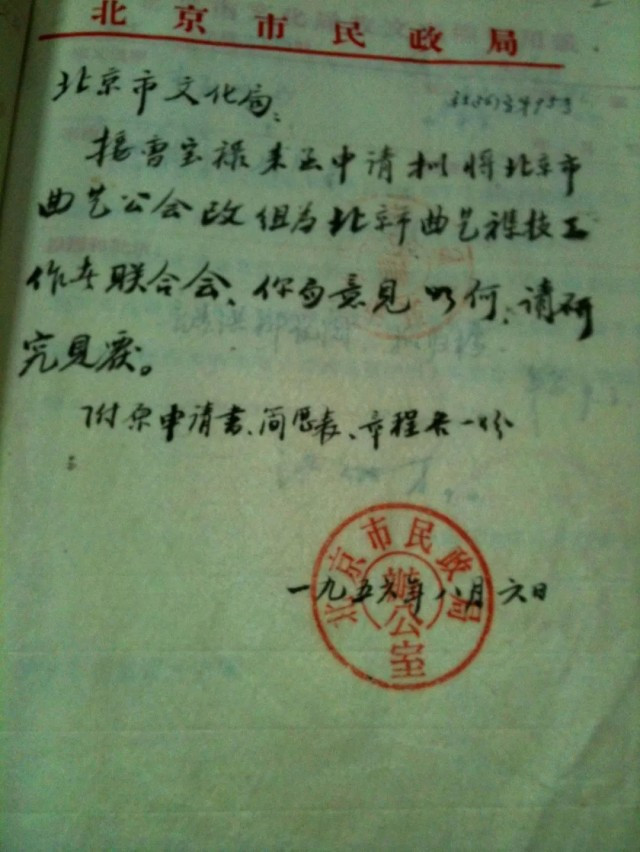 北京市民政局
北京市文化局：
接曹宝禄来函申请拟将北京市
曲艺公会改组为北京市曲艺杂技工
作者联合会、你局意见如何、请研
究见复。
附原申请书、简历表、章程各一份
北京市民政局
办公室
一九五六年八月六日